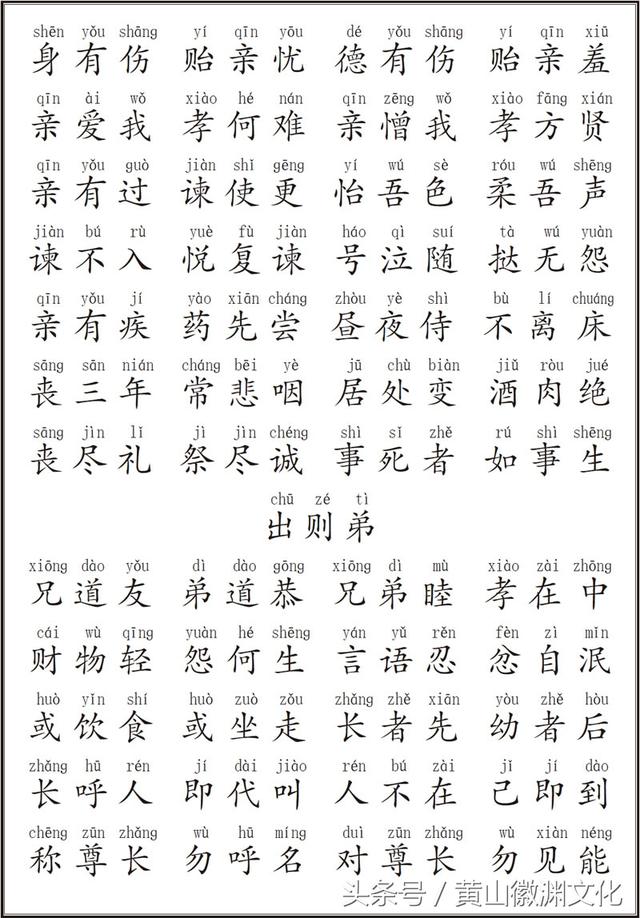 shēn yǒu shāng yí qīn yōu dé yǒu shāng yí qīn xiū
身有伤 贻亲忧 德有伤 贻亲羞
qīn ài wǒ xiào hé nán qīn zēng wǒ xiào fāng xián
亲爱我 孝何难 亲憎我 孝方贤
qīn yǒu guò jiàn shǐ gēng yí wú sè róu wú shēng
亲有过 谏使更 怡吾色 柔吾声
jiàn bú rù yuè fù jiàn háo qì suí tà wú yuàn
谏不入 悦复谏 号泣随 挞无怨
qīn yǒu jí yào xiān cháng zhòu yè shì bù lí chuáng
亲有疾 药先尝 昼夜侍 不离床
sāng sān nián cháng bēi yè jū chù biàn jiǔ ròu jué
丧三年 常悲咽 居处变 酒肉绝
sāng jìn lǐ jì jìn chéng shì sǐ zhě rú shì shēng
丧尽礼 祭尽诚 事死者 如事生
chū zé tì
出则弟
xiōng dào yǒu dì dào gōng xiōng dì mù xiào zài zhōng
兄道友 弟道恭 兄弟睦 孝在中
cái wù qīng yuàn hé shēng yán yǔ rěn fèn zì mǐn
财物轻 怨何生 言语忍 忿自泯
huò yǐn shí huò zuò zǒu zhǎng zhě xiān yòu zhě hòu
或饮食 或坐走 长者先 幼者后
zhǎng hū rén jí dài jiào rén bú zài jǐ jí dào
长呼人 即代叫 人不在 己即到
chēng zūn zhǎng wù hū míng duì zūn zhǎng wù xiàn néng
称尊长 勿呼名 对尊长 勿见能
头条号 / 黄山徽渊文化